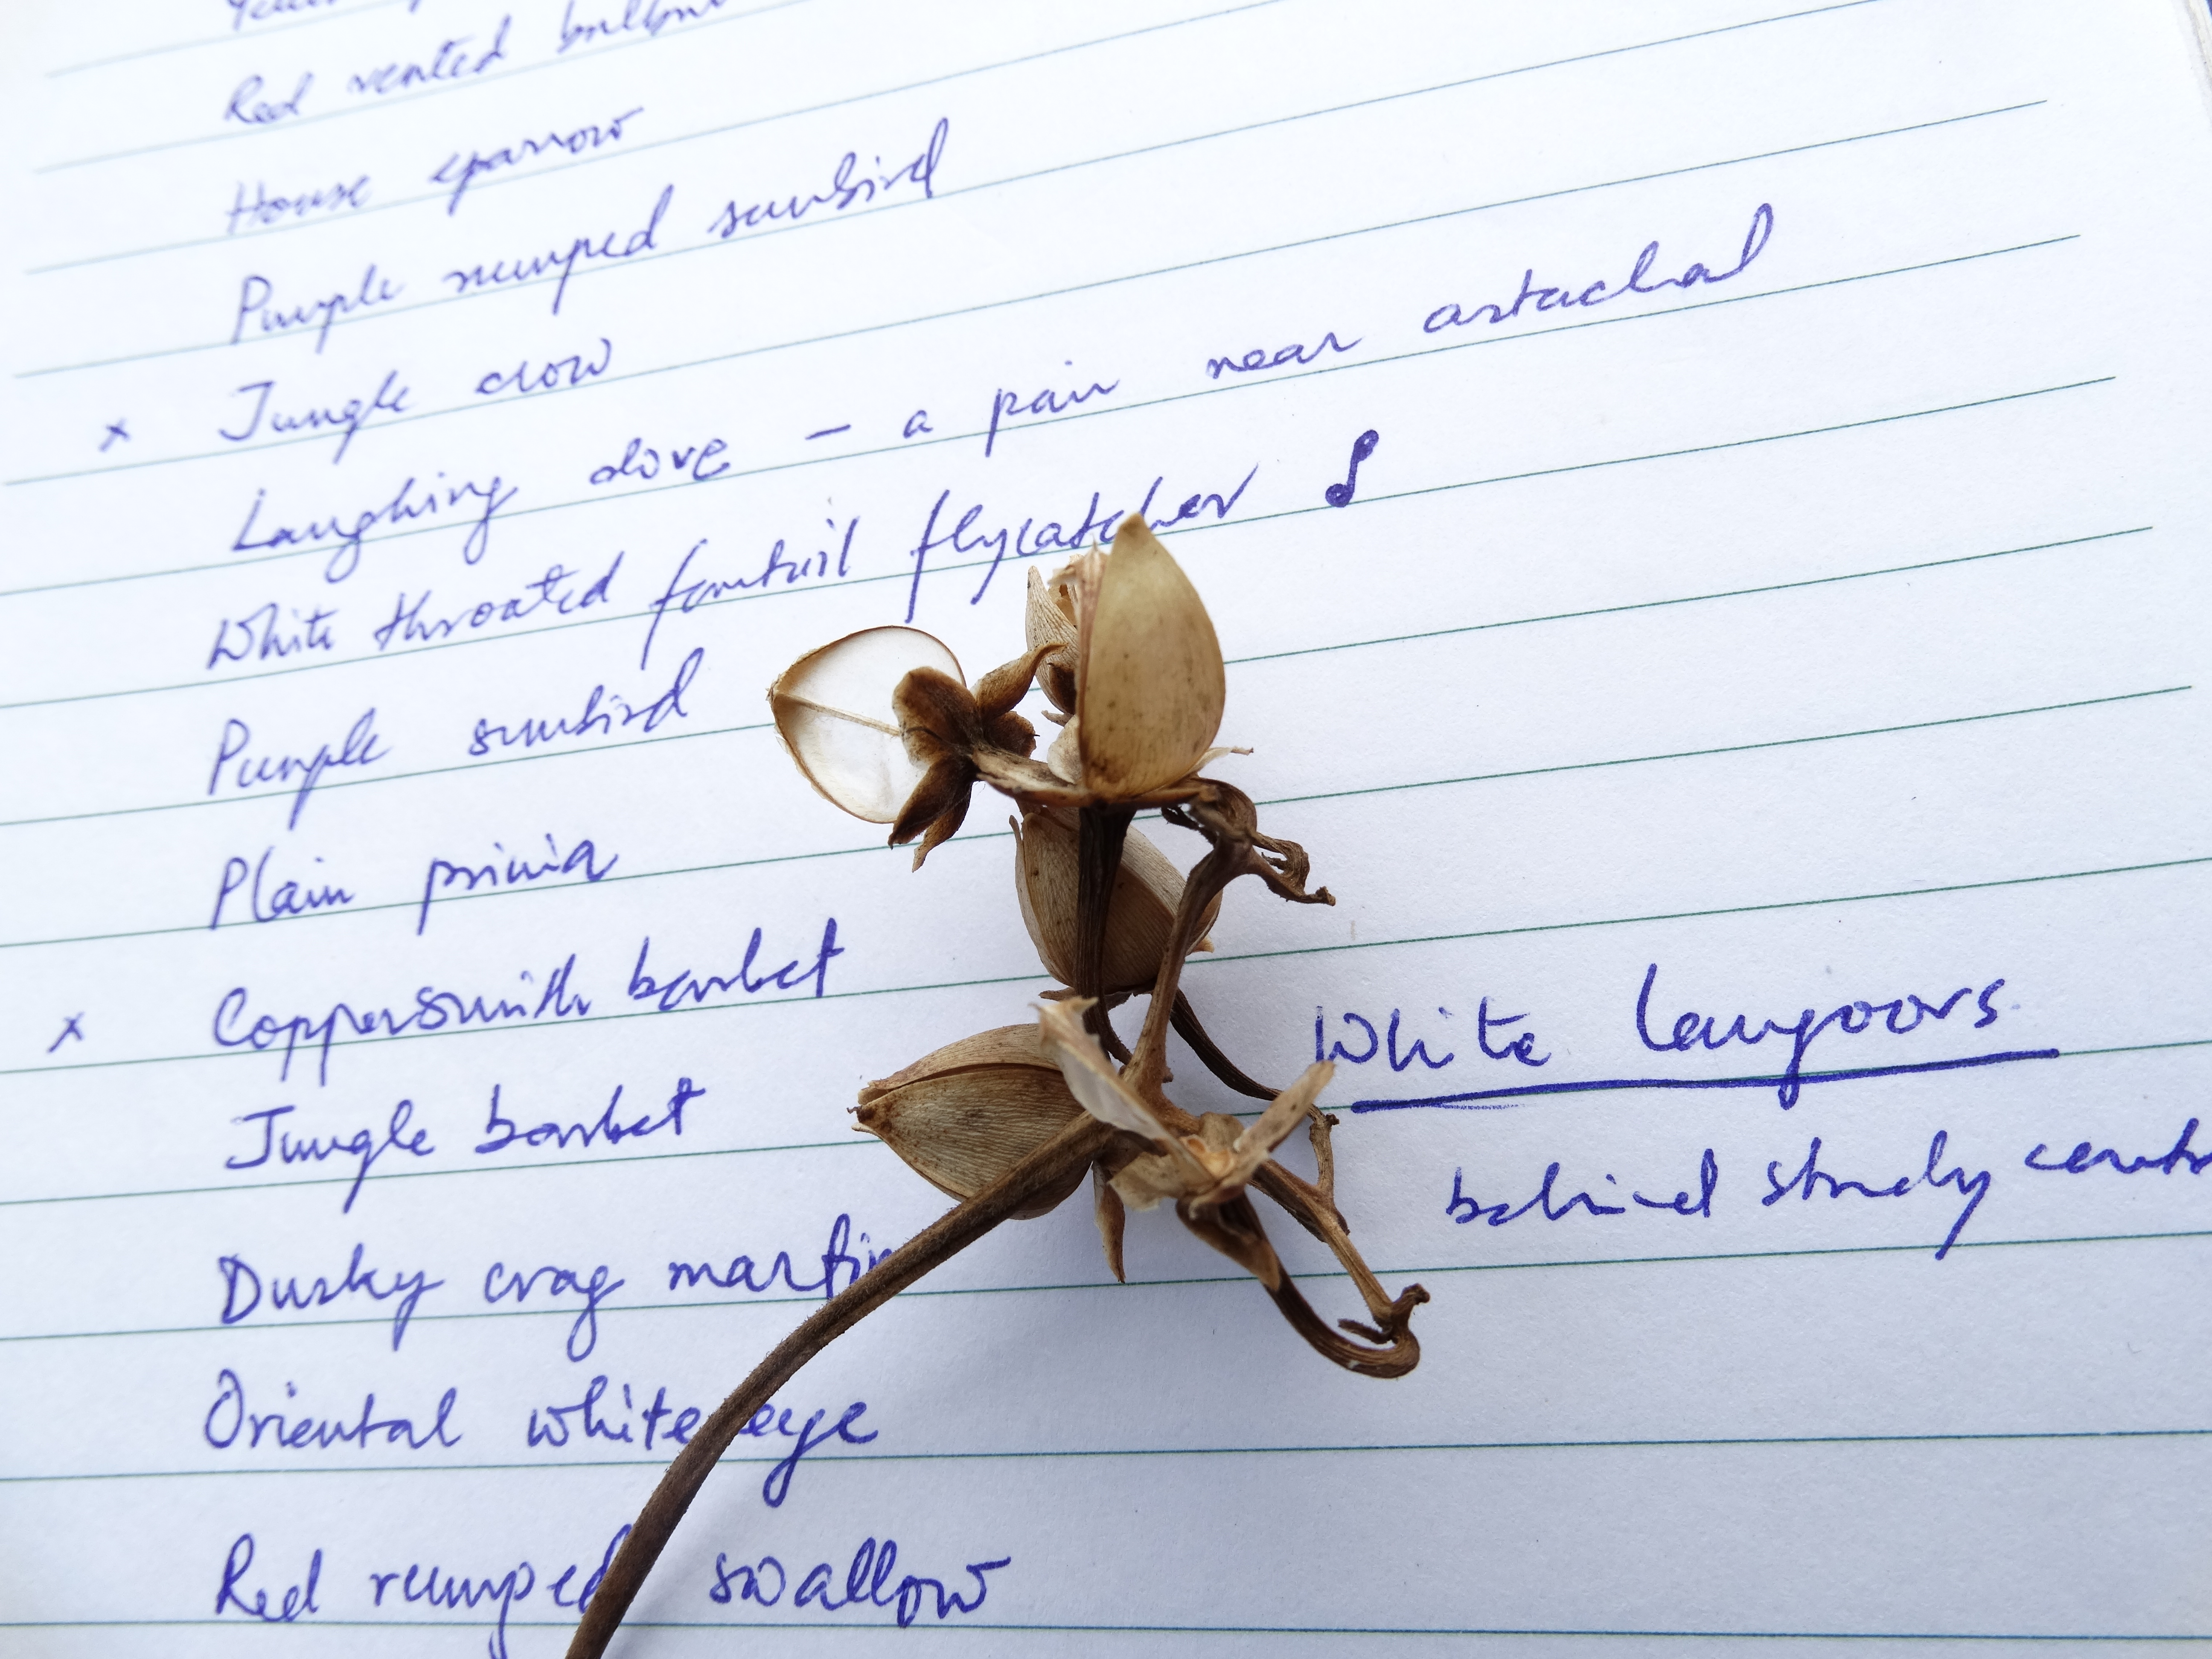 Red vented bulbul
House sparrow
Purple rumped sunbird
x Jungle crow
Laughing dove - a pair near astachal
White throated fantail flycatcher
Purple sunbird
Plain prinia
x Coppersmith barbet
White langoors
Jungle barbet
behind study
Dusky crag martin
Oriental white eye
Red rumped swallow